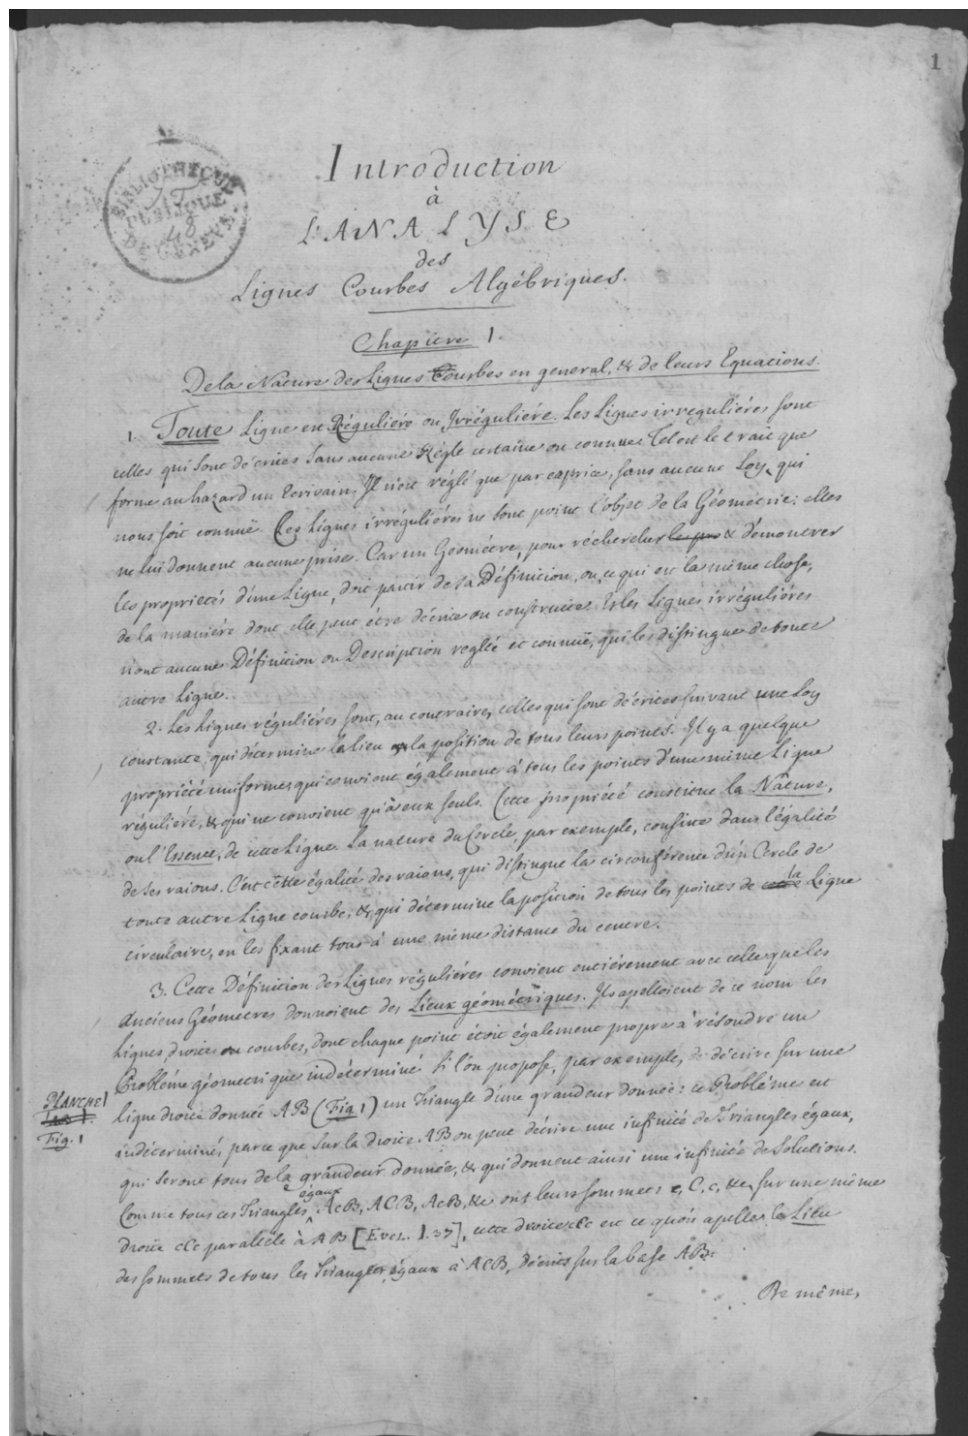 1
BIBLIOTHEQUE
PUBLIQUE
48
DE GENEVE
Introduction
à
L'ANALYSE
des
Lignes Courbes Algébriques.
Chapitre 1.
De la Nature des Lignes Courbes en general, & de leurs Equations.
1. Toute Ligne est Réguliére ou Irréguliére. Les Lignes irreguliéres sont
celles qui sont décrites sans aucune Régle certaine ou connue. Tel est le trait que
forme au hazard un Ecrivain. Il n'est réglé que par caprice, sans aucune Loy qui
nous soit connuë. Ces Lignes irréguliéres ne sont point l'objet de la Géométrie: elles
ne lui donnent aucune prise. Car un Géométre, pour rechercher & démontrer
les proprietés d'une Ligne, doit partir de sa Définition, ou, ce qui est la même chose,
de la maniére dont elle peut être décrite ou construite. Et les Lignes irréguliéres
n'ont aucune Définition ou Description reglée et connuë, qui les distingue de toute
autre Ligne.
2. Les Lignes réguliéres sont, au contraire, celles qui sont décrites suivant une Loy
constante, qui détermine le lieu ou la position de tous leurs points. Il y a quelque
propriété uniforme, qui convient également à tous les points d'une même Ligne
réguliére, & qui ne convient qu'à eux seuls. Cette propriété constitue la Nature,
ou l'Essence, de cette Ligne. La nature du Cercle, par exemple, consiste dans l'égalité
de ses raions. C'est cette égalité des raions, qui distingue la circonférence d'un Cercle de
toute autre Ligne courbe, & qui détermine la position de tous les points de la Ligne
circulaire, en les fixant tous à une même distance du centre.
3. Cette Définition des Lignes réguliéres convient entiérement avec celle que les
Anciens Géometres donnoient des Lieux géométriques. Ils apelloient de ce nom les
Lignes, droites ou courbes, dont chaque point étoit également propre à résoudre un
Probléme géometrique indéterminé. Si l'on propose, par exemple, de décrire sur une
PLANCHE 1
Fig. 1
ligne droite donnée AB (Fig 1) un Triangle d'une grandeur donnée: ce Probléme est
indéterminé, parce que sur la droite AB on peut décrire une infinité de Triangles égaux,
qui seront tous de la grandeur donnée, & qui donnent ainsi une infinité de Solutions.
Comme tous ces Triangles égaux AcB, ACB, AcB, &c ont leurs sommets c, C, c, &c, sur une même
droite cCc paralléle à AB [Eucl. I. 37], cette droite cCc est ce qu'on apelle le Lieu
des sommets de tous les Triangles égaux à ACB, décrits sur la base AB.
De même,